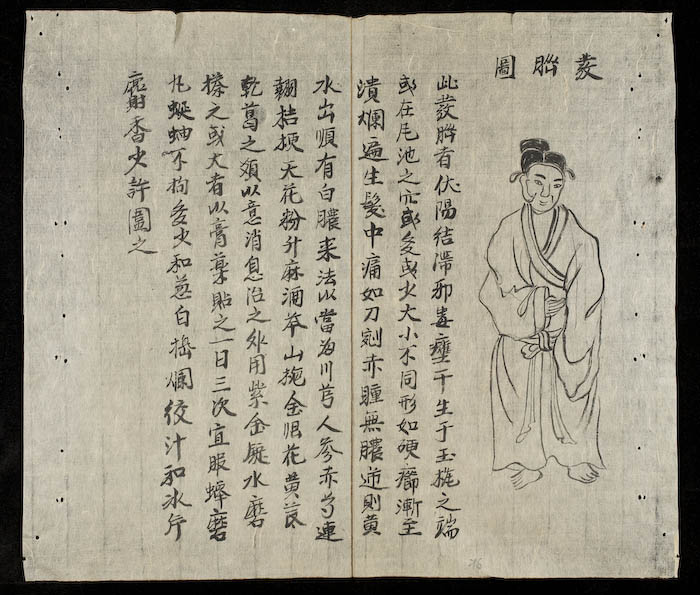 圖
此者伏陽結滯那毒壅于生于玉之端
或在尾池之穴或多或少大小不同形如硬漸至
潰爛遍生髮中痛如刀剜赤腫無膿逆則黄
水出順有白膿来法以當為川芎人參赤芍連
翹桔梗天花粉升麻酒芩山金花黄
乾葛之類以意消息治之外用紫金水磨
搽之或大者以膏藥貼之一日三次宜服蟬磨
九蜒蚰不拘多少和蔥白搗爛絞汁和冰片
麝香少許圍之